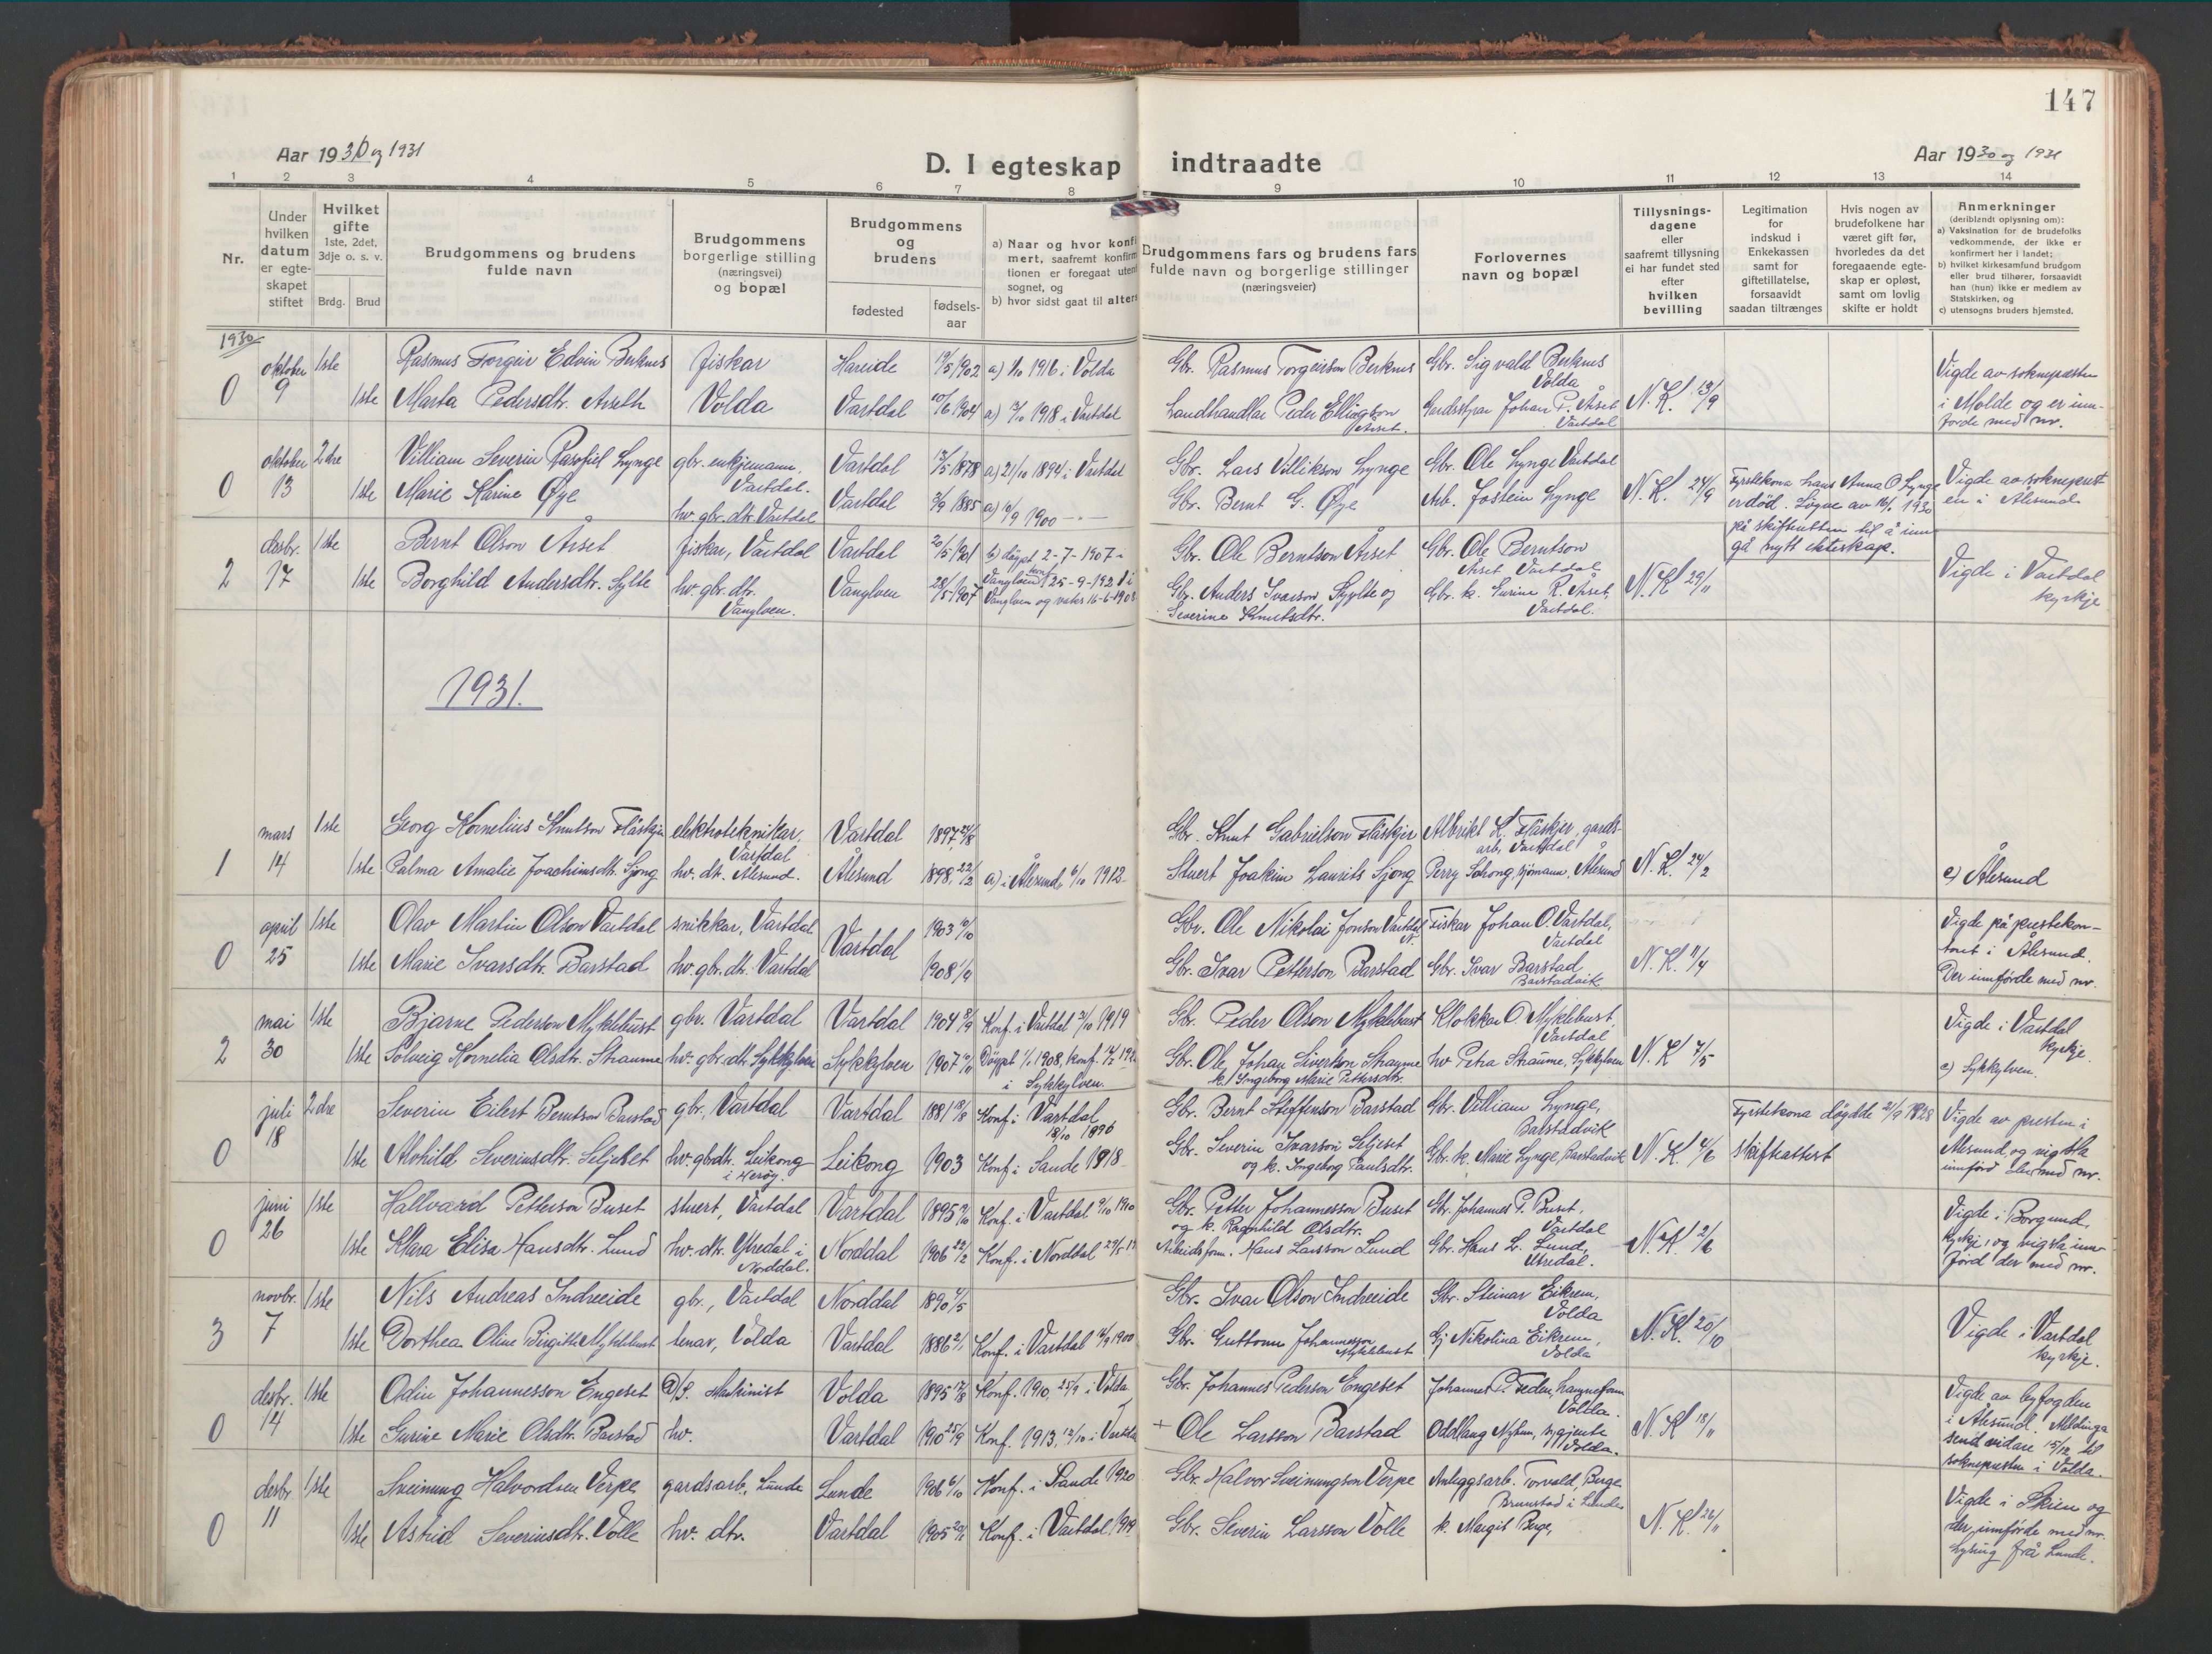 147
Aar 1930 og 1931
D. I egteskap indtraadte
Aar 1930 og 1931
1 2 3 4 5 6 7 8 9 10 11 12 13 14
Nr.
Under hvilken datum er egteskapet stiftet
Hvilket gifte 1ste, 2det, 3dje o. s. v.
Brdg. Brud
Brudgommens og brudens fulde navn
Brudgommens borgerlige stilling (næringsvei) og bopæl
Brudgommens og brudens
fødested
fødsels-aar
a) Naar og hvor konfirmert, saafremt konfirmtionen er foregaat utenfor sognet, og
b) hvor sidst gaat til alters
Brudgommens fars og brudens fars fulde navn og borgerlige stillinger (næringsveier)
Forlovernes navn og bopæl
Tillysningsdagene eller saafremt tillysning ei har fundet sted efter hvilken bevilling
Legitimation for indskud i Enkekassen samt for giftetillatelse, forsaavidt saadan tiltrænges
Hvis nogen av brudefolkene har været gift før, hvorledes da det foregaaende egteskap er opløst, samt om lovlig skifte er holdt
Anmerkninger (deriblandt oplysning om):
a) Vaksination for de brudefolks vedkommende, der ikke er konfirmert her i landet;
b) hvilket kirkesamfund brudgom eller brud tilhører, forsaavidt han (hun) ikke er medlem av Statskirken, og
c) utensogns bruders hjemsted.
1930
0 oktober 9 1ste Rasmus Torgeir Edvin Berknes fiskar Hareide 19/5 1902 a) 1/10 1916 i Volda Gbr. Rasmus Torgeirson Berknes Gbr. Sigvald Berknes Volda
1ste Marta Pedersdtr. Aseth Volda Vartdal 10/6 1904 a) 1918 i Vartdal Landhandlar Peder Ellingson Åset. Johan P. Åset Vartdal N.K. 13/9
Vigde av soknepresten i Molde og er innførde med nr.
0 oktober 13 2dre Villiam Severin Lynge gbr. enkjemann. Vartdal. Vartdal 1878 a) 21/10 1894 i Vartdal Gbr. Lars Villikson Lynge Gbr. Ole Lynge Vartdal
1ste Marie Karine Øye hv. gbr. dtr. Vartdal Vartdal 3/9 1885 a) 1900 Gbr. Bernt G. Øye Arb. Jostein Lynge N.K. 24/9
Fyrstekona hans Anna O. Lynge er död. Løyve av 16/1 1930 på skifteretten til å inngå nytt ekteskap.
Vigde av soknepresten i Ålesund
2 desbr. 17 1ste Bernt Olson Åset fiskar, Vartdal Vartdal 20/5 1901 b) döypt 2-7-1907 Gbr. Ole Berntson Åset Gbr. Ole Berntson Åset Vartdal
1ste Borghild Andersdtr. Sylte hv. gbr. dtr. Vanylven. Vanylven 28/5 1907 Vanylven konf. 25-9-1921 i Vanylven Gbr. Anders Ivarson Sylte og Severine Knutsdtr. Gbr. k. Severine R. Åset, Vartdal. N.K. 29/11
Vigde i Vartdal kyrkje
1931.
1 mars 14 1ste Georg Kornelius Knutson Flåskjer elektroteknikar, Vartdal Vartdal 1897 Gbr. Knut Gabrielson Flåskjer Albrikt K. Flåskjer, gardsarb. Vartdal
1ste Palma Amalie Joachimsdtr. Sjong hv. dt. Ålesund. Ålesund 1898, 22/2 a) i Ålesund 6/10 1912 Stuert Joakim Laurits Sjong Perry Schong, sjömann, Ålesund N.K. 24/2
c) Ålesund
0 april 25 1ste Olav Martin Olson Vartdal snikkar, Vartdal Vartdal 1903 Gbr. Ole Nikolai Jonson Vartdal Fiskar Johan O. Vartdal, Vartdal
1ste Marie Ivarsdtr. Barstad hv. gbr. dtr. Vartdal 1908 Gbr. Ivar Petterson Barstad Gbr. Ivar Barstad Barstadvik N.K. 11/4
Vigde på prestekontoret i Ålesund. Der innförde med nr.
2 mai 30 1ste Bjarne Pederson Myklebust gbr. Vartdal Vartdal 1904 Konf. i Vartdal 1919 Gbr. Peder Olson Myklebust Klokkar O. Myklebust, Vartdal
1ste Solveig Kornelia Olsdtr. Straume hv. gbr. dtr. Sykkylven Sykkylven 1907 Döypt 1908, konf. i Sykkylven. Gbr. Ole Johan Sivertson Straume k. Ingeborg Marie Pettersdtr. hv. Petra Straume, Sykkylven N.K. 7/5
Vigde i Vartdal kyrkje.
c) Sykkylven.
0 juli 18 2dre Severin Eilert Berntson Barstad gbr., Vartdal Vartdal 1881 Konf. i Vartdal 18/10 1896 Gbr. Bernt Steffenson Barstad Gbr. Villiam Lynge, Barstadvik
1ste Alvhild Severinsdtr. Seljeset hv. gbrdtr. Leikong i Heröy. Leikong 1903 Konf. i Sande 1918 Gbr. Severin Ivarson Seljeset og k. Ingeborg Paulsdtr. Gbr. k. Marie Lynge, Barstadvik N.K. 4/6
Fyrstekona döydde 2/9 1928 Skifteattest
Vigde av presten i Ålesund og vigsla innförd der med nr.
0 juni 26 1ste Hallvard Petterson Buset stuert, Vartdal Vartdal 1895 Konf. i Vartdal 1910 Gbr. Petter Johannesson Buset og k. Ragnhild Olsdtr. Gbr. Johannes P. Buset, Vartdal
1ste Klara Elise Hansdtr. Lund hv. dtr. Ytredal i Norddal. Norddal 1906 22/2 Konf. i Norddal Arbeidsform. Hans Larsson Lund Gbr. Hans L. Lund, Ytredal. N.K. 2/6
Vigde i Borgund kyrkje, og vigsla innförd der med nr.
3 novbr. 7 1ste Nils Andreas Indreeide gbr., Vartdal Norddal 1890 Gbr. Ivar Olson Indreeide Gbr. Steinar Eikrem, Volda
1ste Dorthea Oline Birgitte Myklebust lenar, Volda Vartdal 1886 Konf. i Vartdal 1900 Gbr. Guttorm Johannesson Myklebust Gj. Nikolina Eikrem, Volda N.K. 20/10
Vigde i Vartdal kyrkje.
0 desbr. 14 1ste Odin Johannesson Engeset Maskinist Volda 1895 17/8 Konf. 1910, 25/9 i Volda Gbr. Johannes Pederson Engeset Johannes P. Volda.
1ste Gurine Marie Olsdtr. Barstad hv. Vartdal 1910 25/9 Konf. 1913, 12/10 i Vartdal + Ole Larsson Barstad Oddlaug Volda. N.K. 18/11
Vigde av byfogden i Ålesund. Meldinga send vidare 15/12 til soknepresten i Volda.
0 desbr. 11 1ste Sveinung Halvordsen Verpe gardsarb., Lunde Lunde 1906 6/10 Konf. i Lunde 1920 Gbr. Halvor Sveinungson Verpe Anleggsarb. Torvald Berge Brunstad i Lunde
1ste Astrid Severinsdtr. Volle hv. dtr. Vartdal 1905 Konf. i Vartdal 1919 Gbr. Severin Larsson Volle k. Margit Berge, N.K. 26/11
Vigde i Skien og der innförde med nr. Lysing frå Lunde.